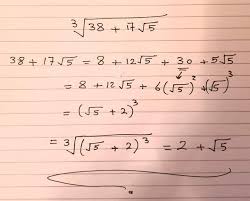 ∛(38 + 17√5)
38 + 17√5 = 8 + 12√5 + 30 + 5√5
= 8 + 12√5 + 6(√5)² + (√5)³
= (√5 + 2)³
= ∛((√5 + 2)³) = 2 + √5